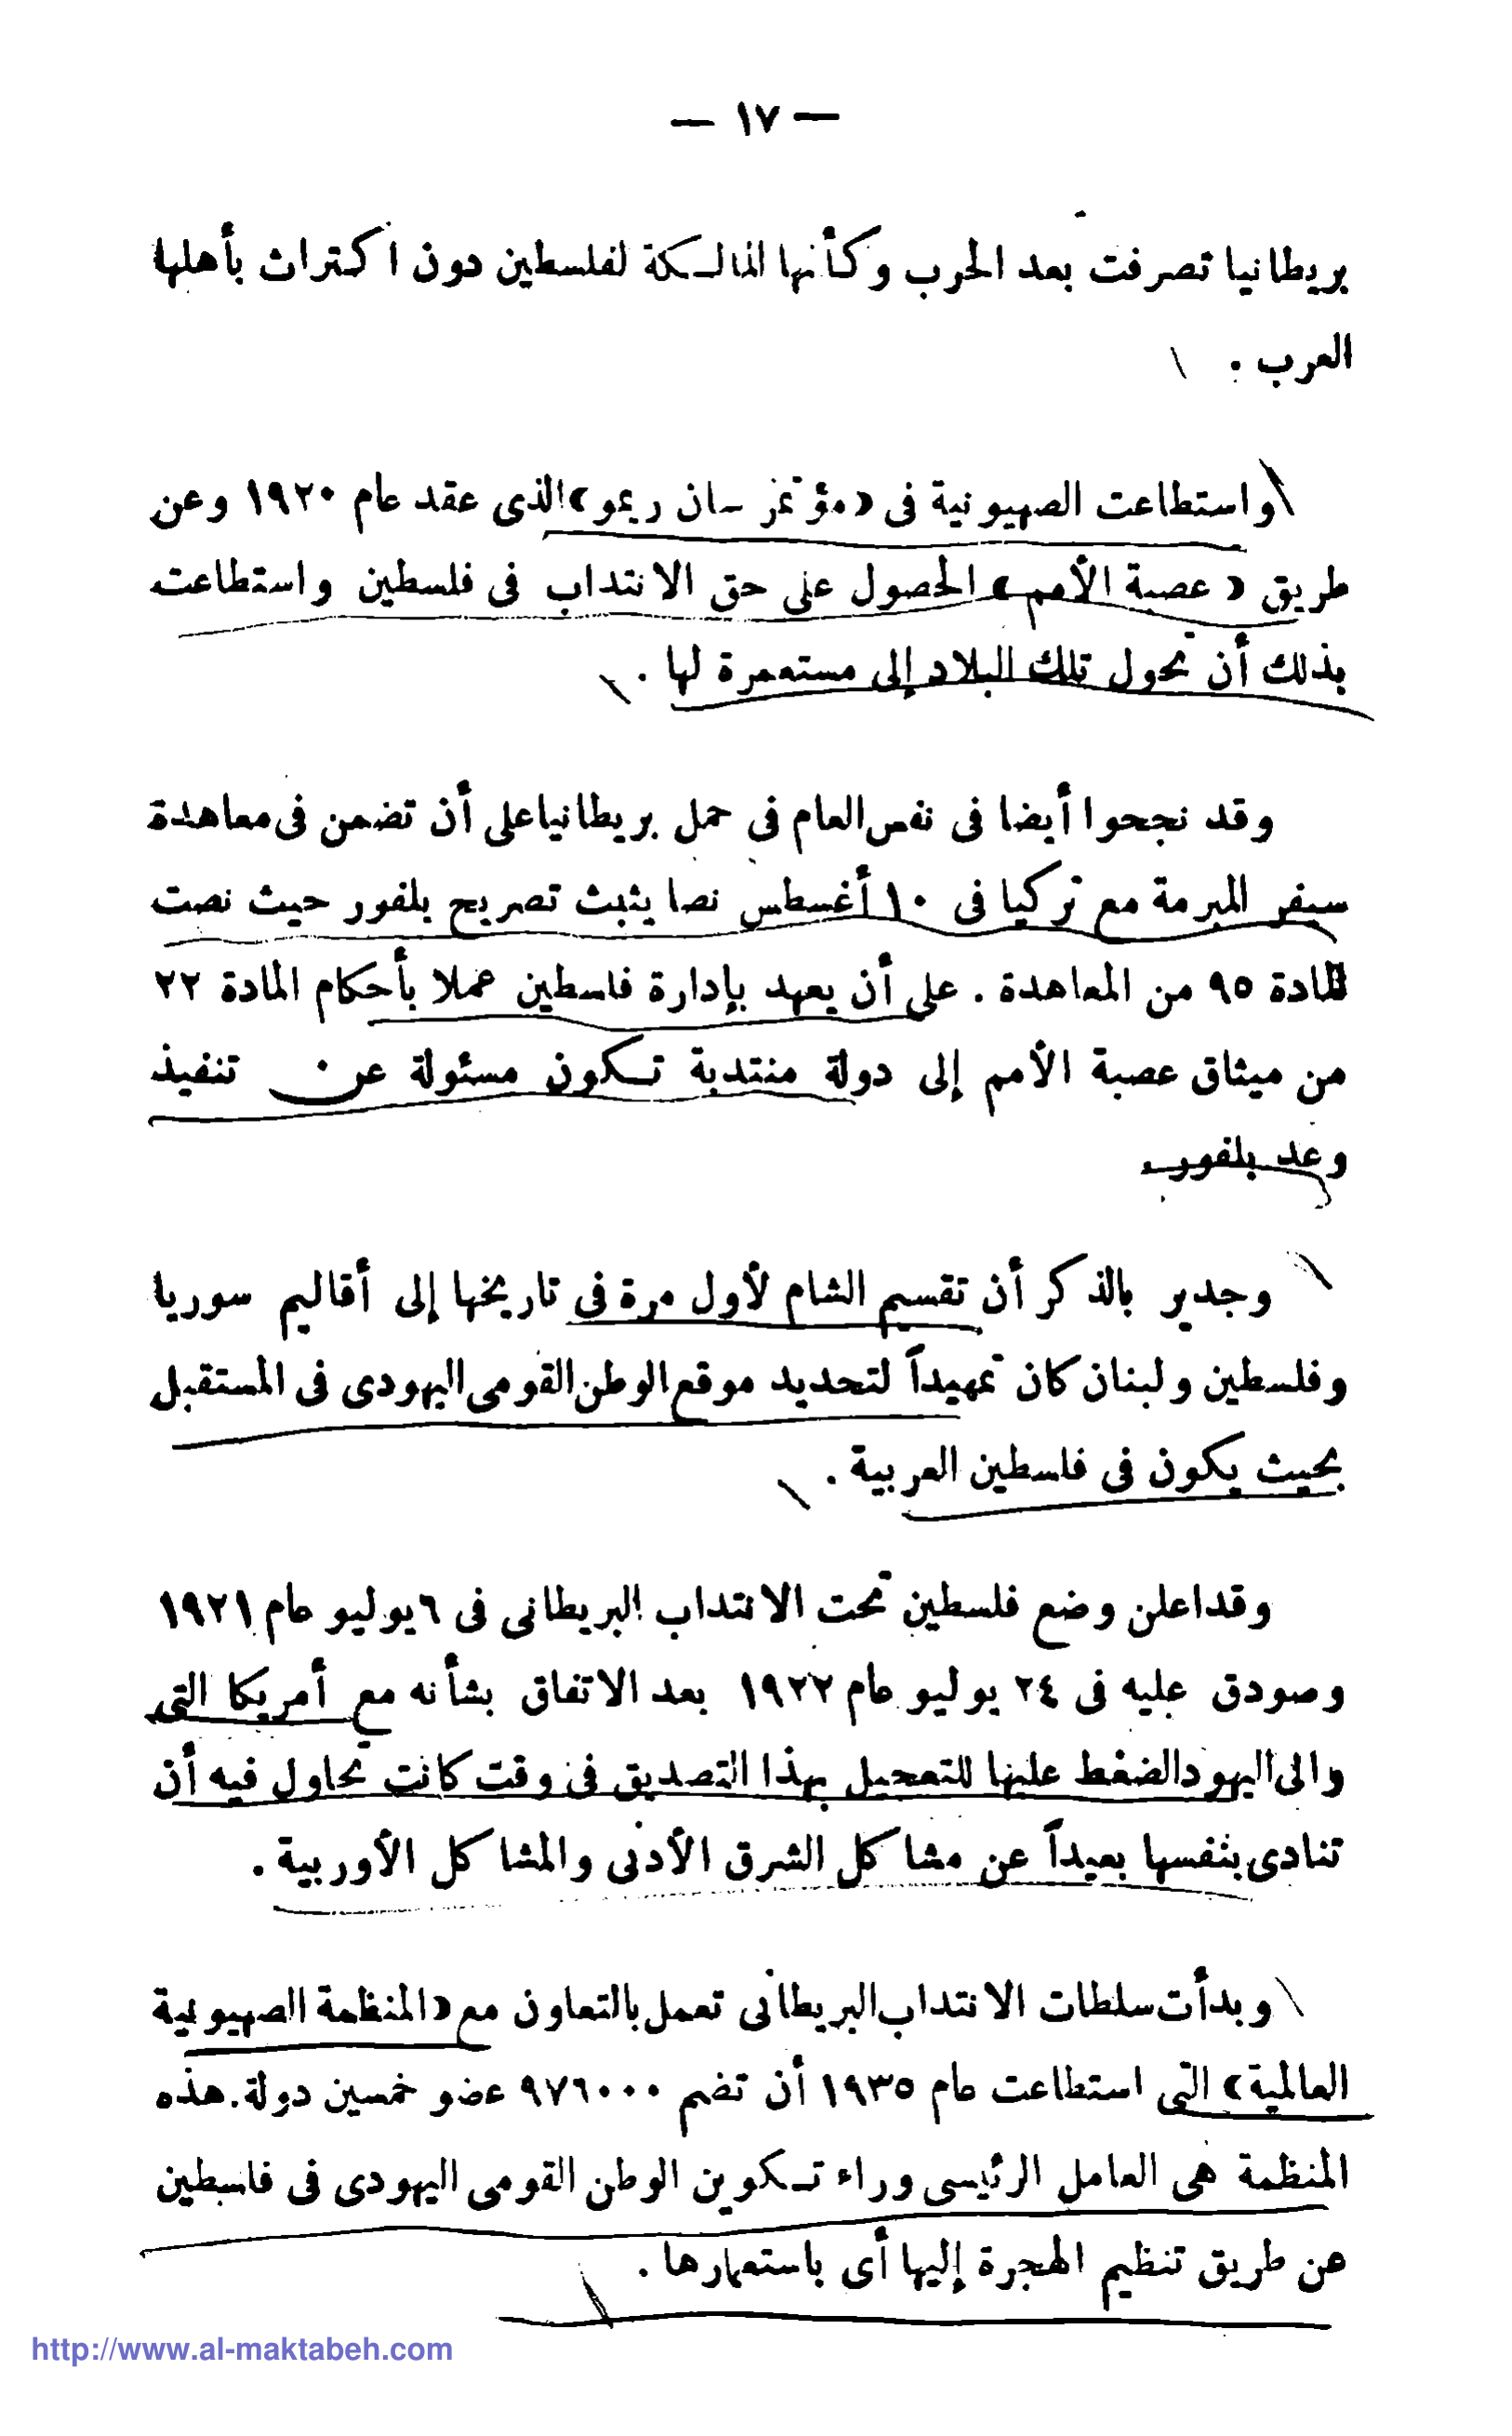 — ١٧ —
بريطانيا تصرفت بعد الحرب وكأنها المالكة لفلسطين دون اكتراث بأهلها
العرب .
واستطاعت الصهيونية فى «مؤتمر سان ريمو» الذى عقد عام ١٩٢٠ وعن
طريق « عصبة الأمم » الحصول على حق الانتداب فى فلسطين واستطاعت
بذلك أن تحول تلك البلاد إلى مستعمرة لها .
وقد نجحوا أيضا فى نفس العام فى حمل بريطانيا على أن تضمن فى معاهدة
سيفر المبرمة مع تركيا فى ١٠ أغسطس نصا يثبت تصريح بلفور حيث نصت
المادة ٩٥ من المعاهدة . على أن يعهد بإدارة فلسطين عملا بأحكام المادة ٢٢
من ميثاق عصبة الأمم إلى دولة منتدبة تكون مسئولة عن تنفيذ
وعد بلفور .
وجدير بالذكر أن تقسيم الشام لأول مرة فى تاريخها إلى أقاليم سوريا
وفلسطين ولبنان كان تمهيداً لتحديد موقع الوطن القومى اليهودى فى المستقبل
بحيث يكون فى فلسطين العربية .
وقد اعلن وضع فلسطين تحت الانتداب البريطانى فى ٦ يوليو عام ١٩٢١
وصودق عليه فى ٢٤ يوليو عام ١٩٢٢ بعد الاتفاق بشأنه مع أمريكا التى
والى اليهود الضغط عليها للتعجيل بهذا التصديق فى وقت كانت تحاول فيه أن
تنادى بنفسها بعيداً عن مشاكل الشرق الأدنى والمشاكل الأوربية .
وبدأت سلطات الانتداب البريطانى تعمل بالتعاون مع «المنظمة الصهيونية
العالمية» التى استطاعت عام ١٩٣٥ أن تضم ٩٧٦٠٠٠ عضو خمسين دولة. هذه
المنظمة هى العامل الرئيسى وراء تكوين الوطن القومى اليهودى فى فلسطين
عن طريق تنظيم الهجرة إليها أى باستعمارها .
http://www.al-maktabeh.com